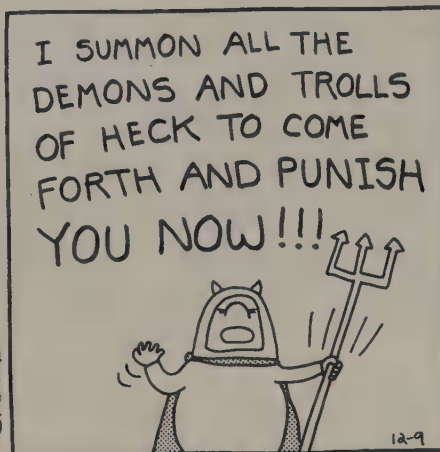 I SUMMON ALL THE
DEMONS AND TROLLS
OF HECK TO COME
FORTH AND PUNISH
YOU NOW!!!
12-9